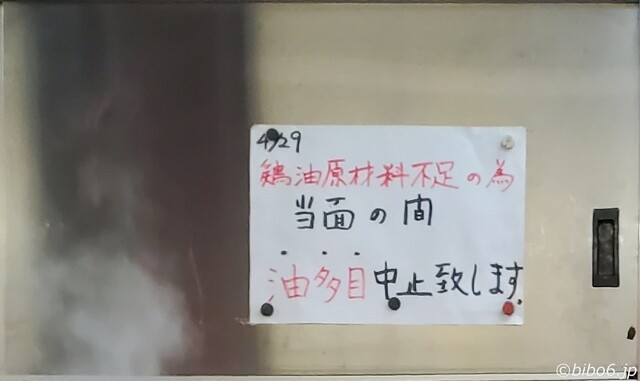 4/29
鶏油原材料不足の為
当面の間
油多目中止致します.
©bibo6.jp